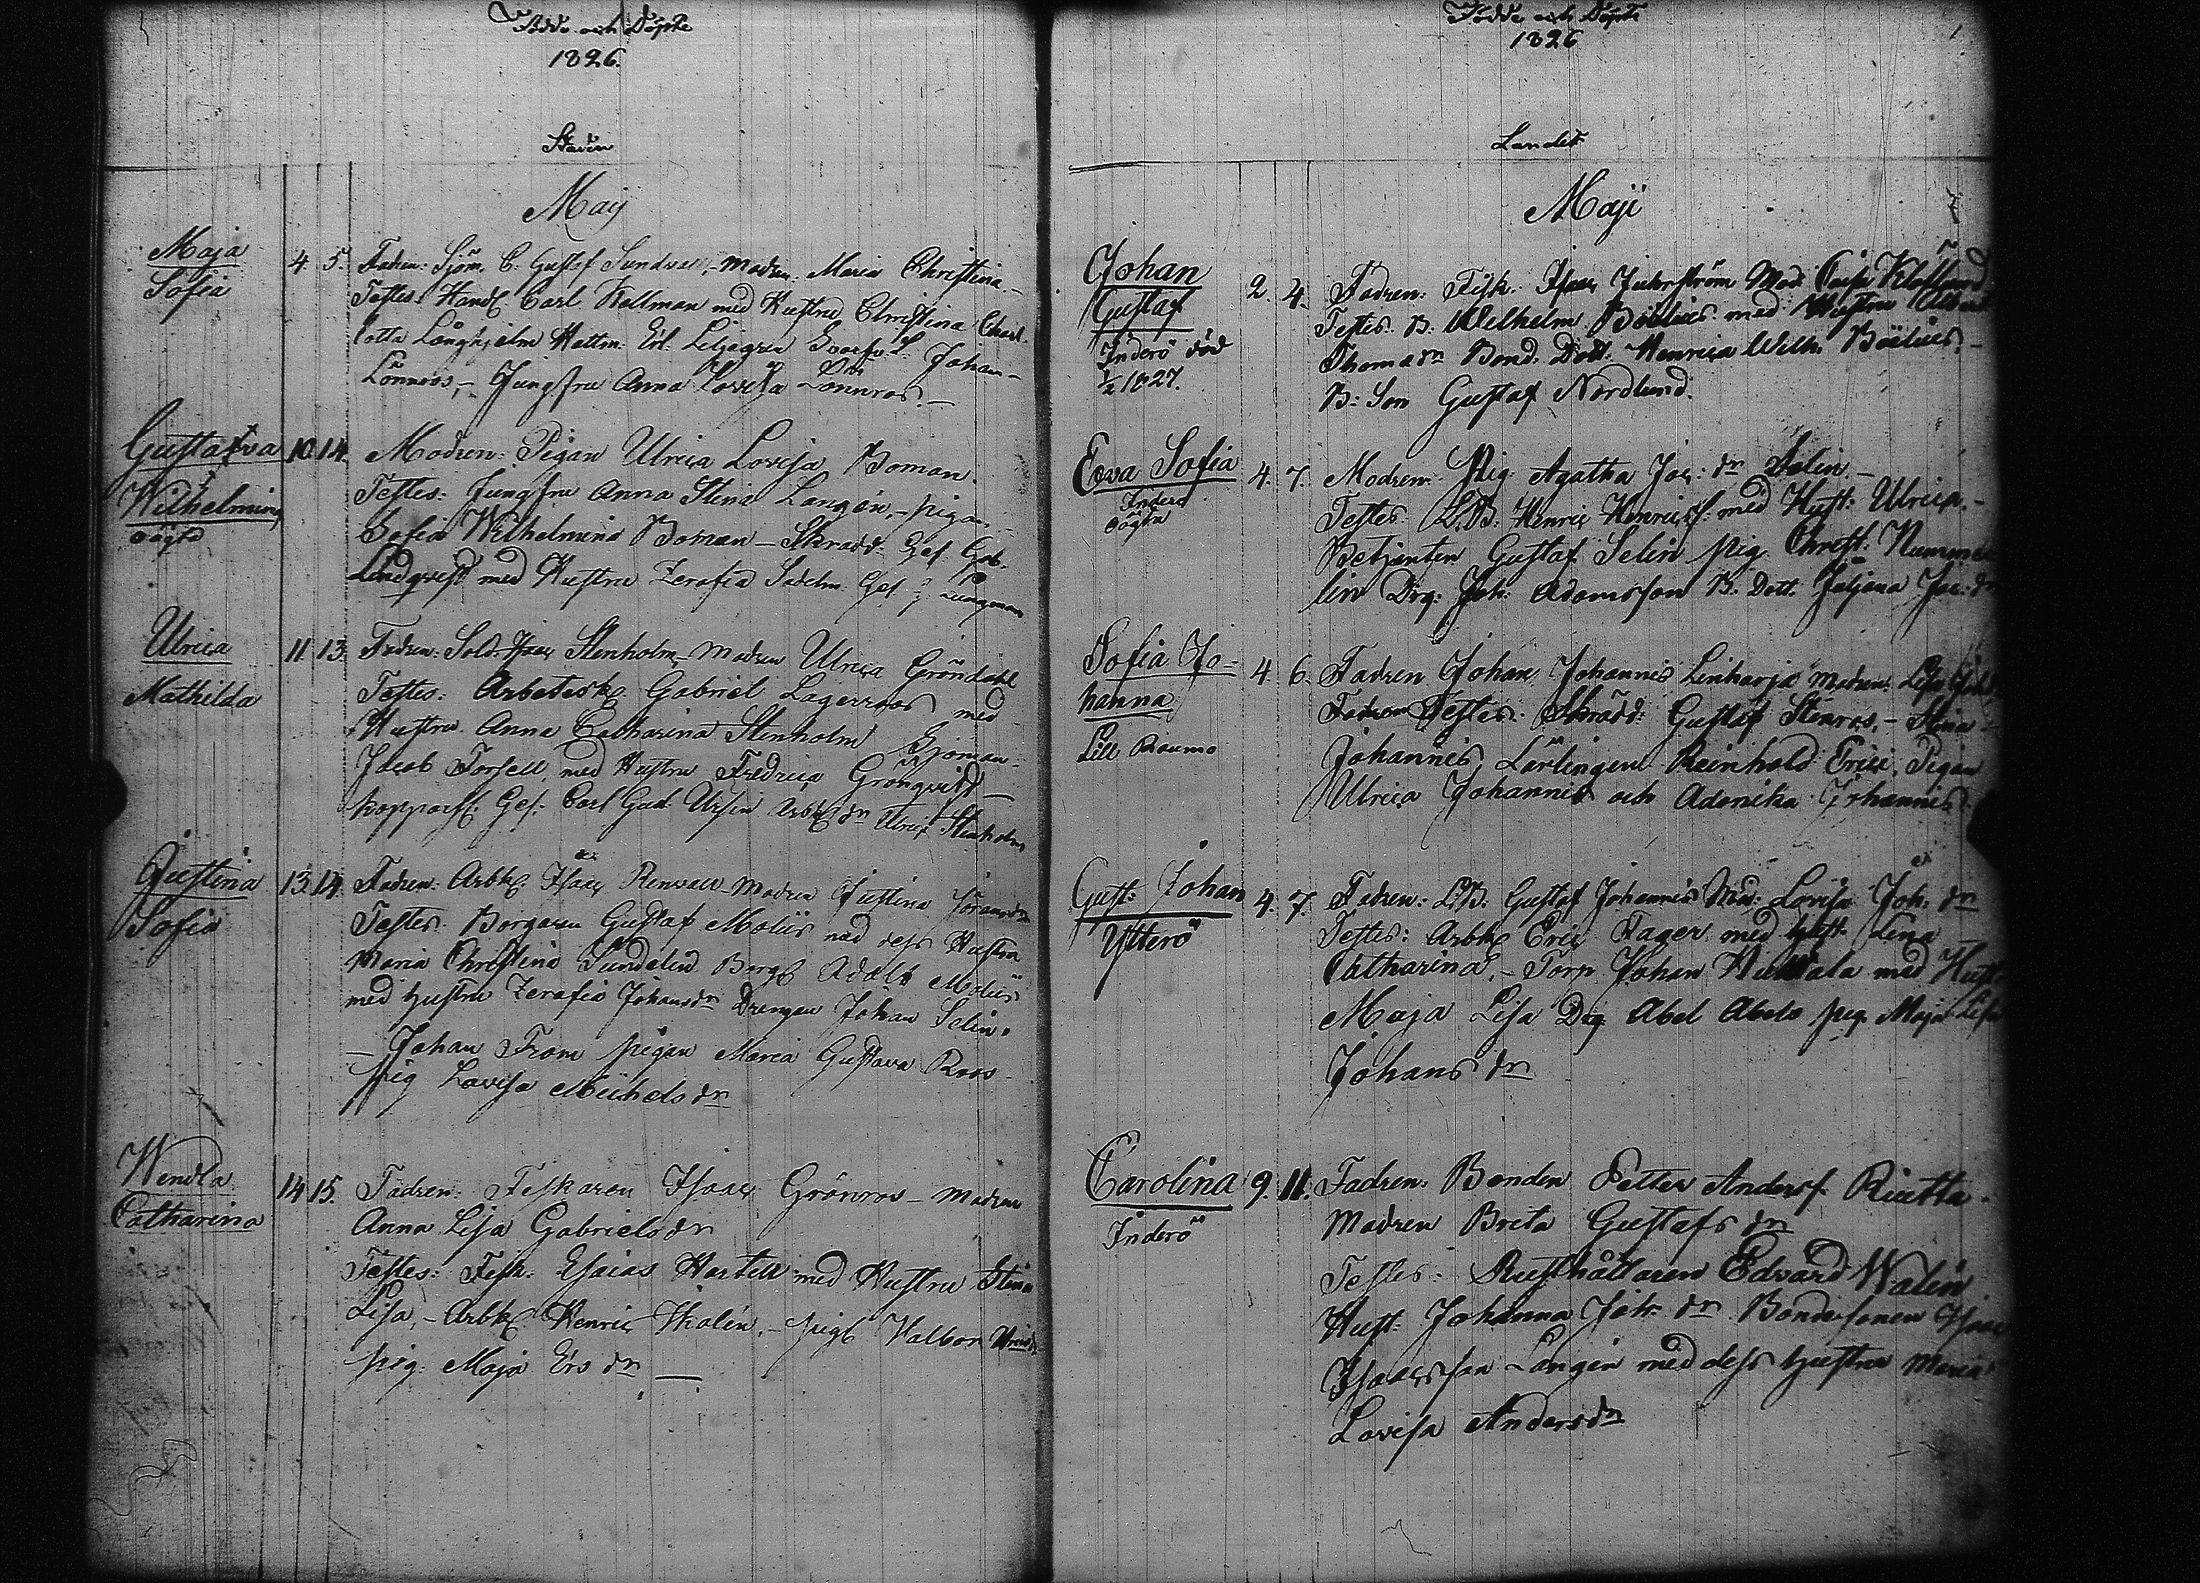 Födde och Döpte
1826.
Staden
Maij
Maja
Sofia
4. 5. Fadren: Sjöm. C. Gustaf Sundvall, Modren: Maria Christina.
Testes: Handl. Carl Kallman med Hustru Christina Charl-
lotta Långhjelm Hattm. Er. Liljegren Svarfv. L. Johan
Lönnros, Jungfru Anna Lovisa Lönnros.
Gustafva
Wilhelmina
oägta
10. 14. Modren: Pigan Ulrica Lovisa Boman.
Testes: Jungfru Anna Stina Langén, pigan
Sofia Wilhelmina Boman Skradd. Ges. Gab.
Lindqvist med Hustru Zerafia Sadelm. Ges. J. Ljungman
Ulrica
Mathilda
11. 13. Fadren: Sold. Isaac Stenholm, Modren Ulrica Gröndahl
Testes: Arbetesk. Gabriel Lagerroos med
Hustru Anna Catharina Stenholm Sjöman
Jacob Forsell med Hustru Fredrica Grönqvist
kopparsl. Ges: Carl Gud. Ursin Arbk. dr Ulrica Stenholm
Justina
Sofia
13. 14. Fadren: Arbk. Isaac Renvall Modren Justina Göransdr
Testes: Borgaren Gustaf Moliis med dess Hustru
Maria Christina Sundelin Borg. Adolf Moliis
med Hustru Zerafia Johansdr Drengen Johan Selin
Johan From pigan Maria Gustava Roos
pig Lovisa Michelsdr
Wendla
Catharina
14. 15. Fadren: Fiskaren Isaac Grönros Modren
Anna Lisa Gabrielsdr
Testes: Fisk. Esaias Hartell med Hustru Stina
Lisa, Arbk. Henric Thalén, pig Valbor
pig. Maja Ersdr
Födde och Döpte
1826
Landet
Maji
Johan
Gustaf
Inderö död
1/2 1827.
2. 4. Fadren: Fisk. Isaac Mod: Caisa
Testes: B. Wilhelm Böelius med Hustru
Thomasdr Bond. Dott. Henrica Wilh. Böelius.
B: Son Gustaf Nordlund.
Eva Sofia
Inderö
oägta
4. 7. Modren: Pig Agatha Jac: dr Selin
Testes: L.B. Henric Henricss. med Hust: Ulrica.
Betjenten Gustaf Selin pig Christ: Numme-
lin Drg: Joh: Adamsson B. Dott. Juljana Jac: dr
Sofia Jo-
hanna
Lill Raumo
4. 6. Fadren Johan Johannis Linharja Modren: Lisa
Fadren Testes: Skrädd: Gustaf Stenros, Stina
Johannis Lärlingen Reinhold Erici, Pigan
Ulrica Johannis och Adonika Johannis
Gust: Johan
Ytterö
4. 7. Fadren: L.B. Gustaf Johannis Mod: Lovisa Joh: dr
Testes: Arbk. Eric Fager med Hust: Lena
Catharina, Torp Johan Huhtala med Hust:
Maja Lisa Drg Abel Abels pig. Maja Lisa
Johans dr
Carolina
Inderö
9. 11. Fadren: Bonden Petter Anderss. Riutta
Modren Brita Gustafs dr
Testes: Rusthållaren Edvard Walin
Hust: Johanna Joh: dr Bondesonen Isaac
Isaacsson Långén med dess Hustru Maria
Lovisa Andersdr